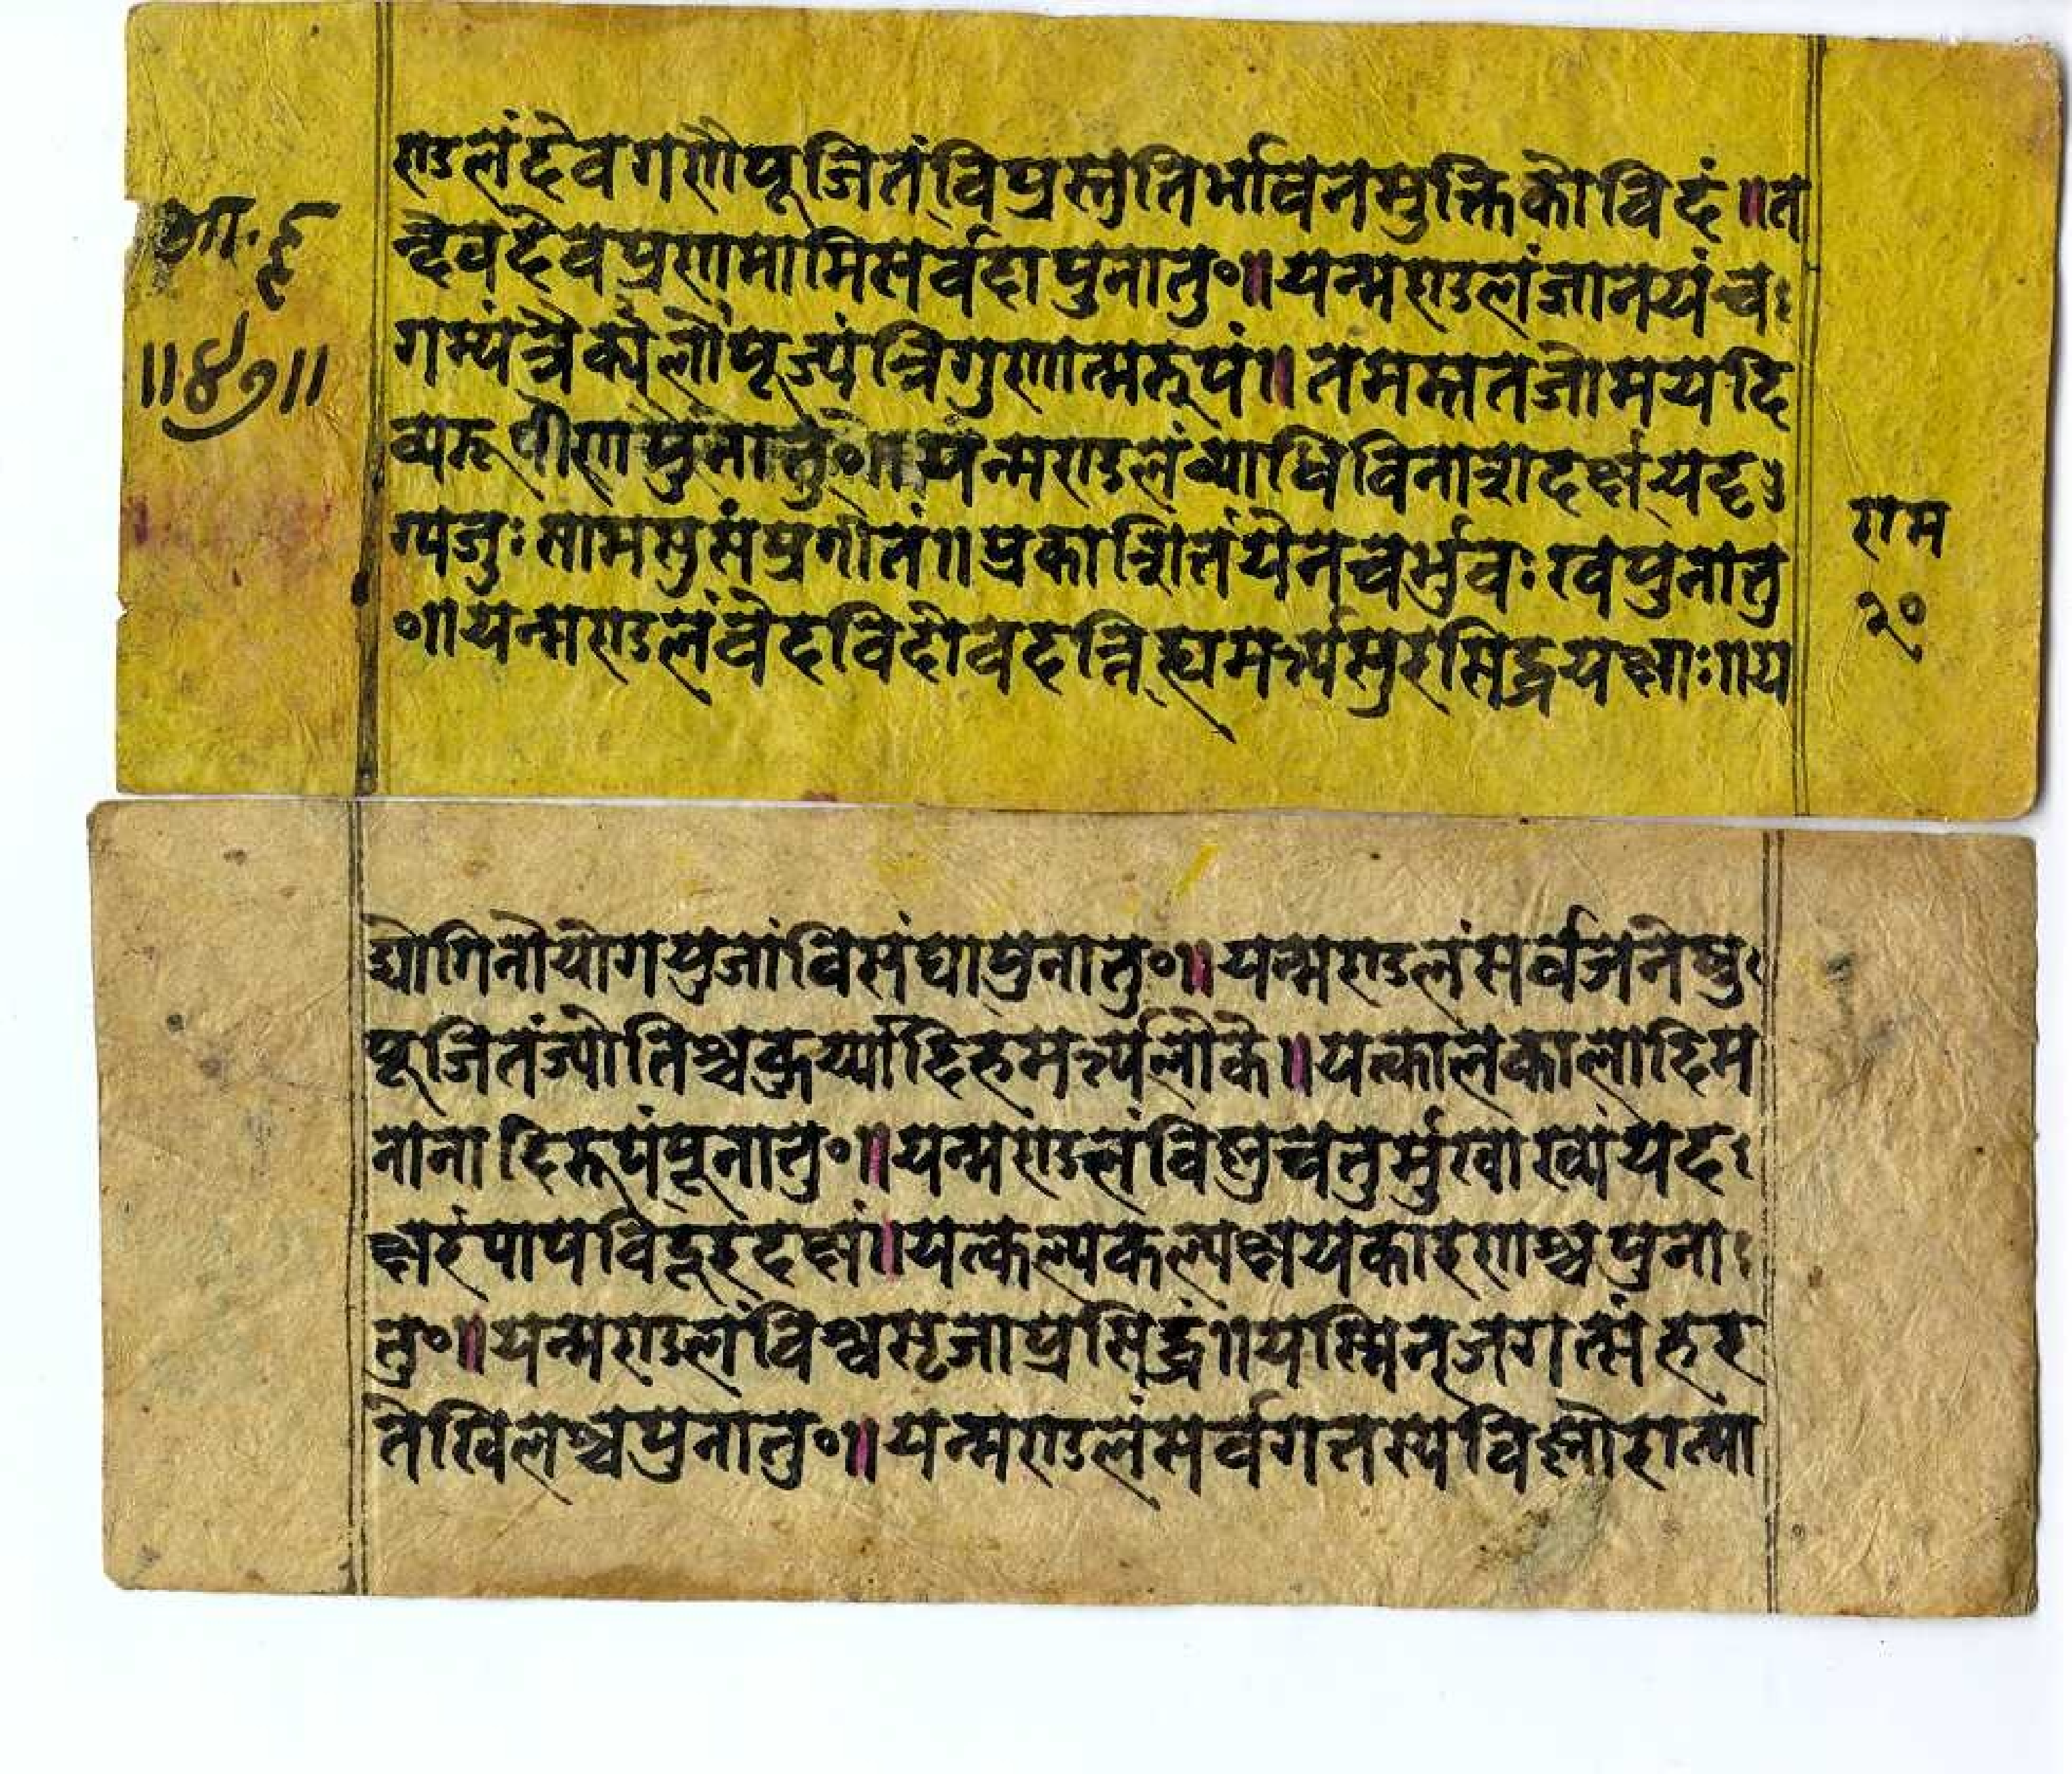 ण्डलंदेवगणैपूजितंविप्रस्तुतिर्भावनमुक्तिकोविदं॥त
न्देवदेवप्रणमामिसर्वदापुनातु०॥यन्मण्डलंज्ञानयंच
गम्यंत्रैक्यैलोंपूज्यंत्रिगुणात्मरूपं॥तमस्ततजोमयदि
व्यरूपीणपुनातु०॥यन्मण्डलंव्याधिविनाशदर्क्षयदृ
ग्यजुःसामसुसंप्रगीतं॥प्रकाशितंयेनचर्भुवःस्वपुनातु
०॥यन्मण्डलंवेदविदोवदन्तिह्यमर्त्यसुरसिद्धयक्षाः॥य
भा.ई
॥४७॥
राम
२०
द्योगिनोयोगपुजांविसंघापुनातु०॥यन्मण्डलंसर्वजनेषु
पूजितंज्योतिश्चक्रर्य्यादिहमर्त्यलोके॥यत्कालकालादिम
नानादिरूपंपूनातु०॥यन्मण्डलंविष्णुचतुर्मुखाख्यंयद
क्षरंपापविदूरंदक्षं॥यत्कल्पकल्पक्षयकारणश्चपुना
तु०॥यन्मण्डलंविश्वसृजाप्रसिद्धं॥यस्मिन्जगत्संहर
तेखिलश्चपुनातु०॥यन्मण्डलंसर्वगतस्यविष्नोरात्मा